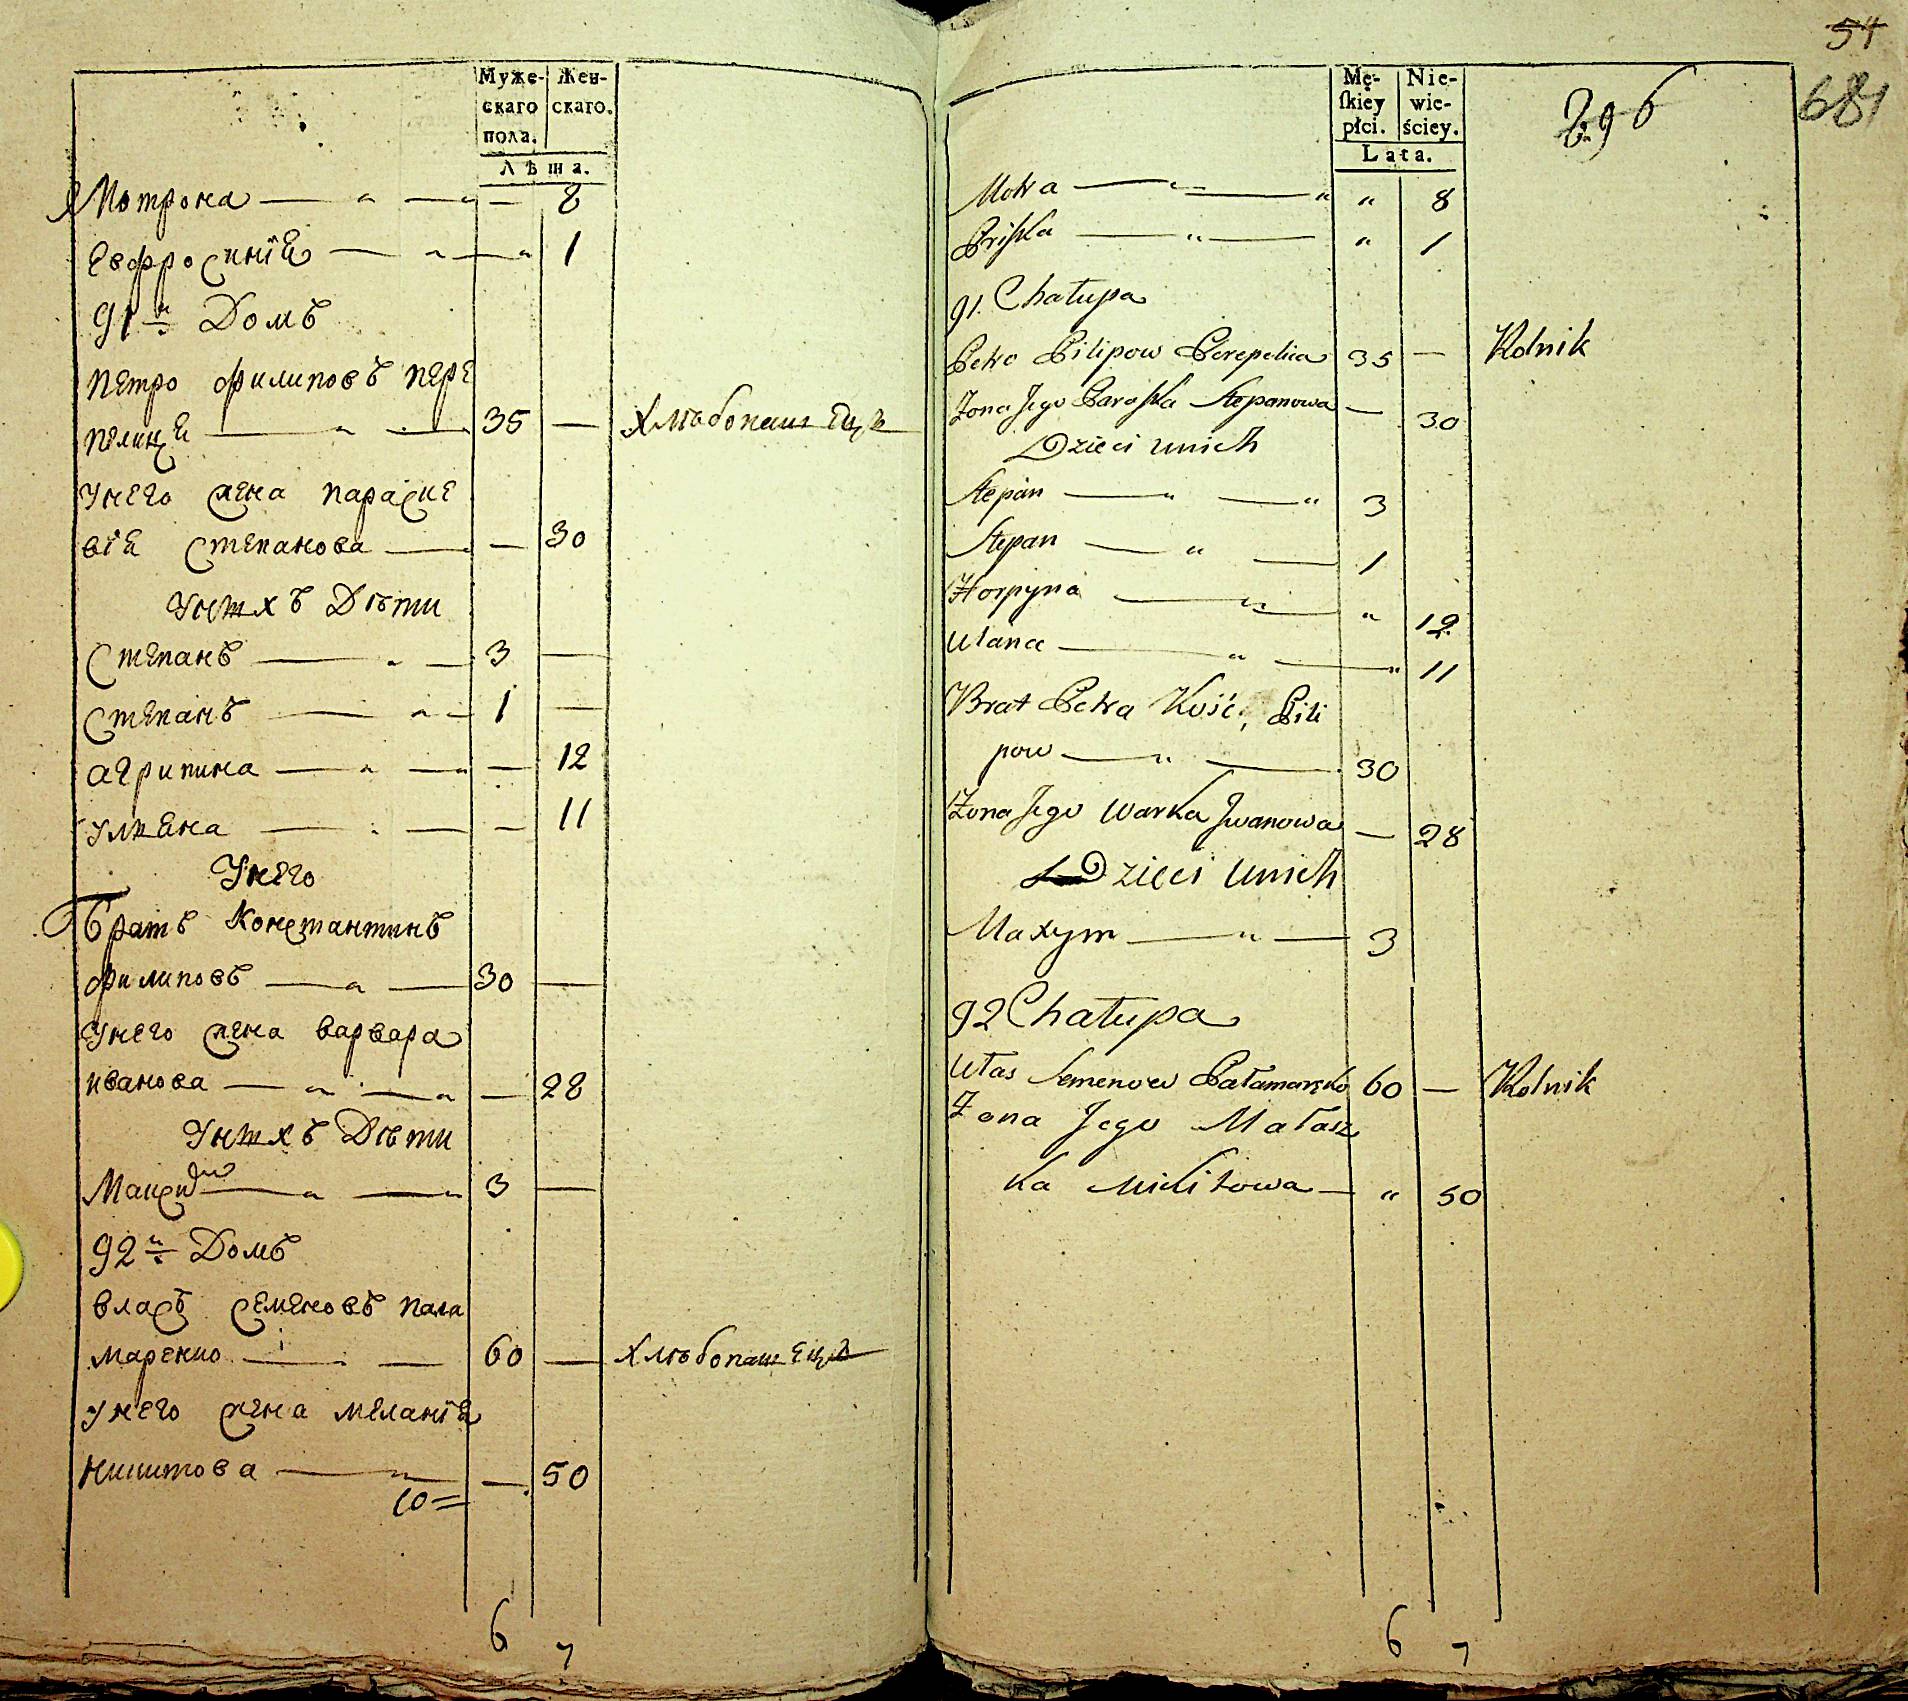 Муже-
скаго
пола.
Жен-
скаго.
Лѣта.
Мотрона — „ — „ — 8
Евфросинїя — „ — „ 1
91й Домъ
Петро Филиповъ пере
пелица — „ — 35 — Хлѣбопашецъ
Унего жена параске
вїя Степанова — — 30
Унихъ Дѣти
Степанъ — „ — 3 —
Степанъ — „ — 1 —
агрипина — „ — „ — 12
улияна — „ — — 11
Унего
Братъ Константинъ
филиповъ — „ — 30 —
Унего жена варвара
иванова — „ — „ — 28
Унихъ Дѣти
Максим — „ — „ 3 —
92й Домъ
власъ семеновъ пала
маренко — — 60 — Хлѣбопашецъ
унего жена меланїя
Никитова — „ — — 50
10=
6 7
54
681
296
Mę-
skiey
płci.
Nie-
wie-
ściey.
Lata.
Motra — „ — „ „ 8
Priska — „ — „ 1
91. Chałupa
Petro Pilipow Perepelica 35 — Rolnik
Zona Jego Paraska Stepanowa — 30
Dzieci unich
Stepan — „ — „ 3
Stepan — „ — 1
Horpyna — „ — „ 12
Ulana — „ — „ 11
Brat Petra Kość, Pili
pow — „ — 30
Zona Jego Warka Jwanowa — 28
Dzieci unich
Maxym — „ — 3
92 Chałupa
Ułas Semenow Pałamarenko 60 — Rolnik
Zona Jego Małasz
ka Mikitowa — „ 50
6 7